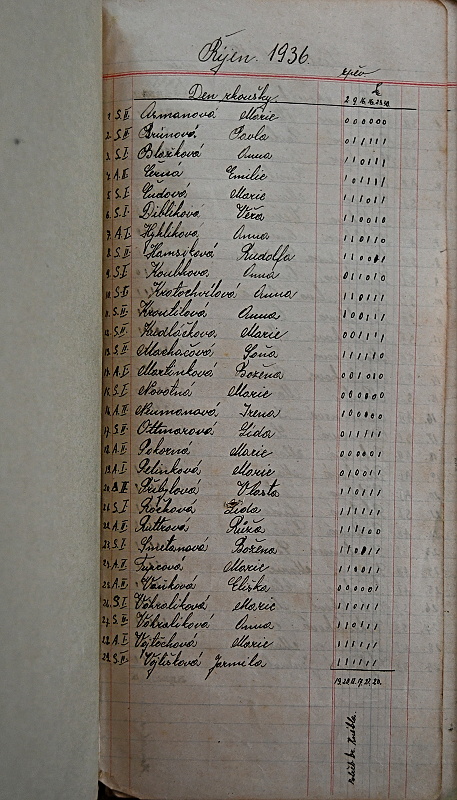 Říjen. 1936.
zpěv
Den zkoušky
2. 9. 16. 23. 30.
1. S.II. Axmanová Marie 000000
2. S.II. Brunová Pavla 011111
3. S.I. Blažíková Anna 110111
4. A.II. Černá Emilie 101111
5. S.I. Čudová Marie 111011
6. S.I. Diblíková Věra 110010
7. A.I. Hýklíková Anna 110110
8. S.II. Hamsíková Rudolfa 110001
9. S.I. Koubková Anna 011010
10. S.II. Kratochvílová Anna 110111
11. S.II. Kroutilová Anna 100111
12. S.II. Kudláčková Marie 001111
13. S.II. Machačová Soňa 111110
14. A.I. Martinková Božena 001010
15. S.I. Novotná Marie 000000
16. A.II. Neumanová Irena 100000
17. S.II. Ottmarová Lída 011111
18. A.II. Pokorná Marie 000001
19. A.I. Pelinková Marie 010011
20. A.II. Přibylová Vlasta 110111
21. S.I. Ročková Lída 111111
22. A.II. Ruttrová Růža 111100
23. S.I. Smetanová Božena 110011
24. A.I. Marie 110011
25. A.II. Vaňková Eliška 000001
26. S.I. Vokrálíková Marie 110111
27. S.II. Vokrálíková Anna 110111
28. A.I. Vojtěchová Marie 111111
29. S.II. Vojtíšková Jarmila 111111
19. 20. 11. 17. 21. 20.